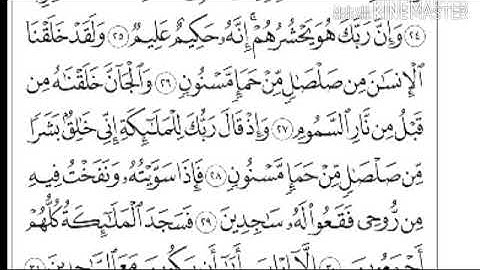 KINEMASTER
٢٤ وَإِنَّ رَبَّكَ هُوَ يَحْشُرُهُمْ ۚ إِنَّهُۥ حَكِيمٌ عَلِيمٌ ٢٥ وَلَقَدْ خَلَقْنَا
ٱلْإِنسَٰنَ مِن صَلْصَٰلٍ مِّنْ حَمَإٍ مَّسْنُونٍ ٢٦ وَٱلْجَآنَّ خَلَقْنَٰهُ مِن
قَبْلُ مِن نَّارِ ٱلسَّمُومِ ٢٧ وَإِذْ قَالَ رَبُّكَ لِلْمَلَٰٓئِكَةِ إِنِّى خَٰلِقٌۢ بَشَرًا
مِّن صَلْصَٰلٍ مِّنْ حَمَإٍ مَّسْنُونٍ ٢٨ فَإِذَا سَوَّيْتُهُۥ وَنَفَخْتُ فِيهِ
مِن رُّوحِى فَقَعُوا۟ لَهُۥ سَٰجِدِينَ ٢٩ فَسَجَدَ ٱلْمَلَٰٓئِكَةُ كُلُّهُمْ
أَجْمَعُونَ ٣٠ إِلَّآ إِبْلِيسَ أَبَىٰٓ أَن يَكُونَ مَعَ ٱلسَّٰجِدِينَ ٣١